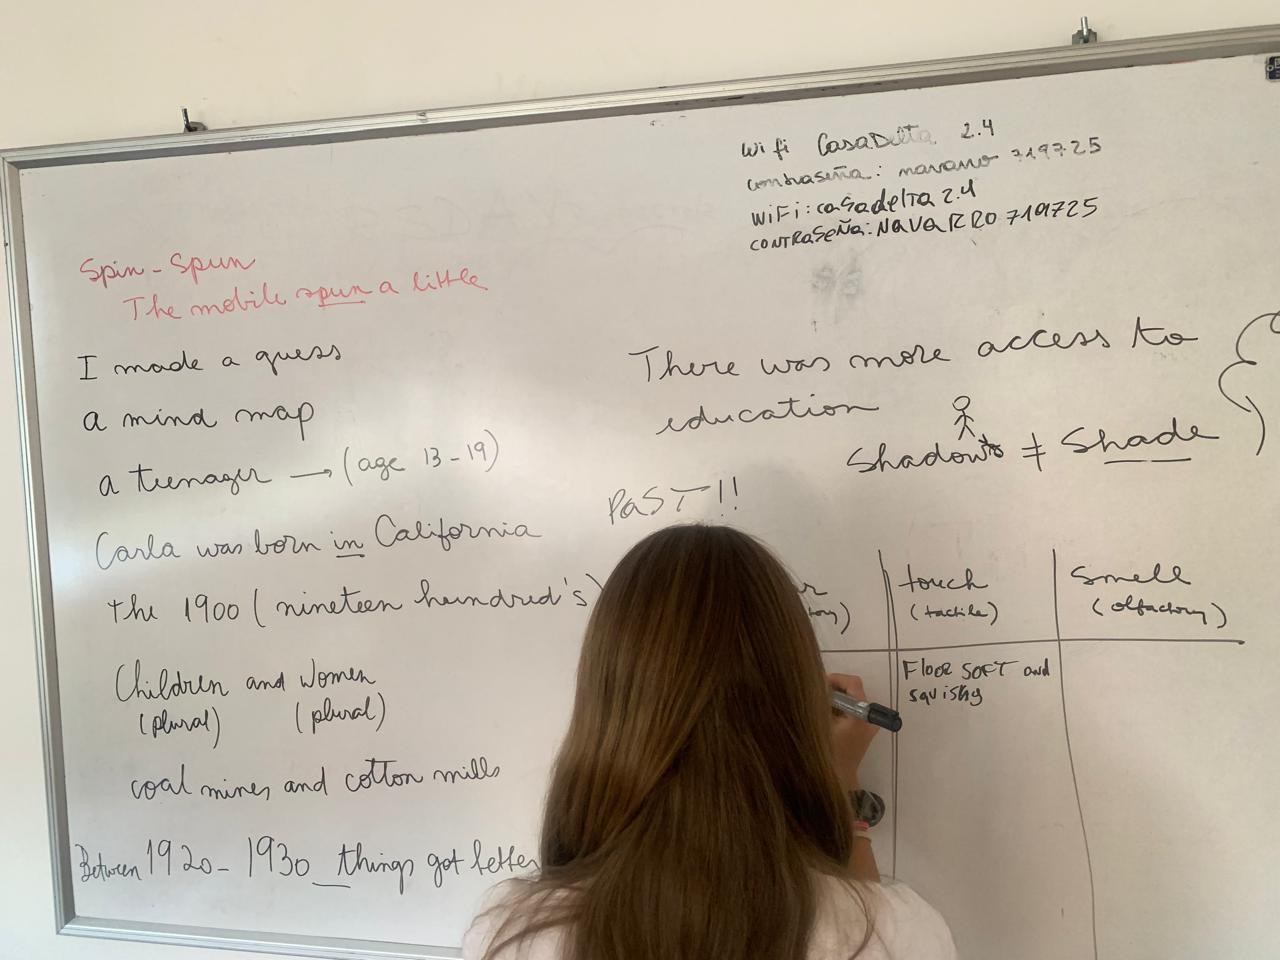 Wifi CasaDelta 2.4
contraseña: navarro 719725
WiFi: casadelta 2.4
CONTRASEÑA: NaVaRRO 719725
Spin - Spun
The mobile spun a little
I made a guess
a mind map
a teenager → (age 13-19)
Carla was born in California
the 1900 (nineteen hundred's)
Children and women
(plural) (plural)
coal mines and cotton mills
Between 1920 - 1930 things got better
There was more access to
education
Shadow ≠ Shade
PaST!!
touch
(tactile)
Smell
(olfactory)
Floor SOFT and
squishy